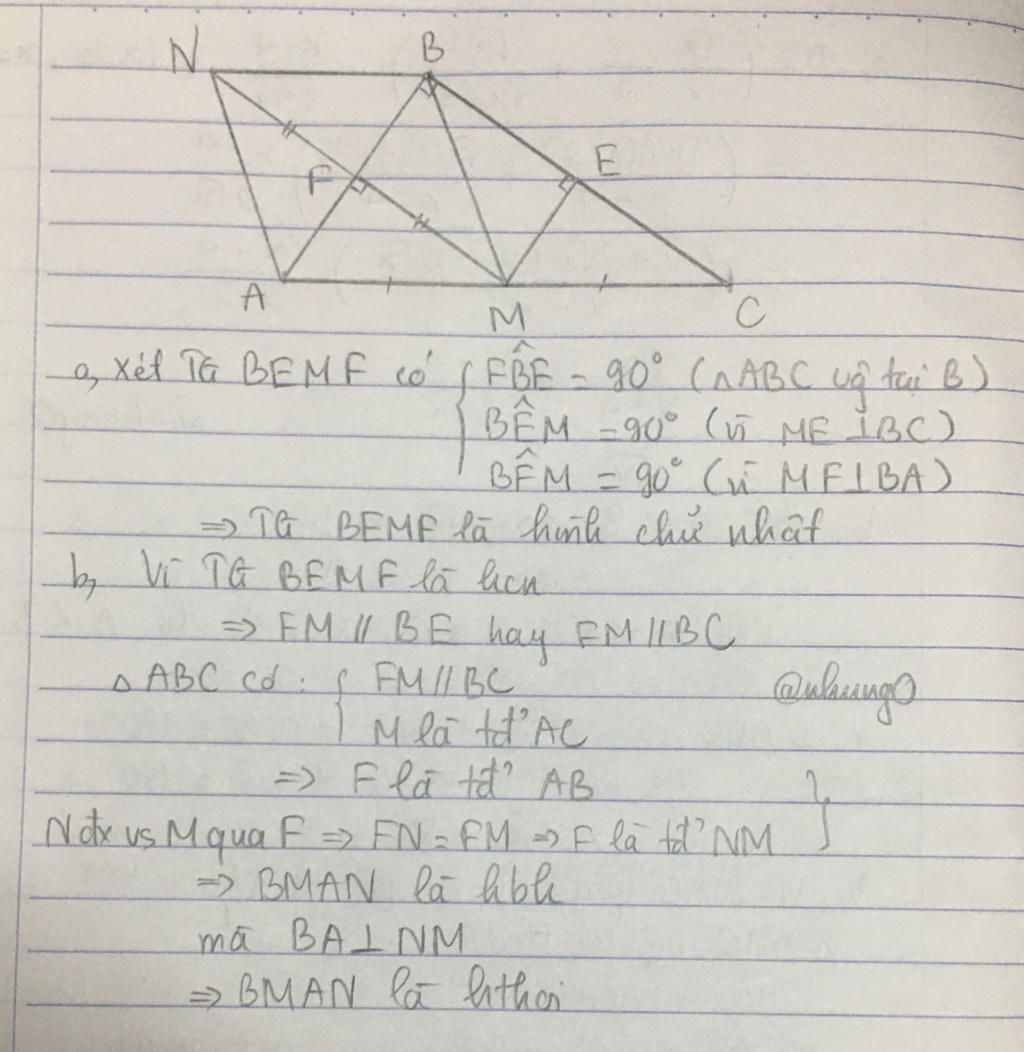 N B
F E
A M C
a, Xét TG BEMF có { FB̂E = 90° (△ABC vg tại B)
BÊM = 90° (vì ME⊥BC)
BF̂M = 90° (vì MF⊥BA)
=> TG BEMF là hình chữ nhật
b, Vì TG BEMF là hcn
=> FM // BE hay FM // BC
△ ABC có : { FM // BC
M là tđ' AC
=> F là tđ' AB }
N đx vs M qua F => FN = FM => F là tđ' NM
@nhung0
=> BMAN là hbh
mà BA⊥NM
=> BMAN là hthoi